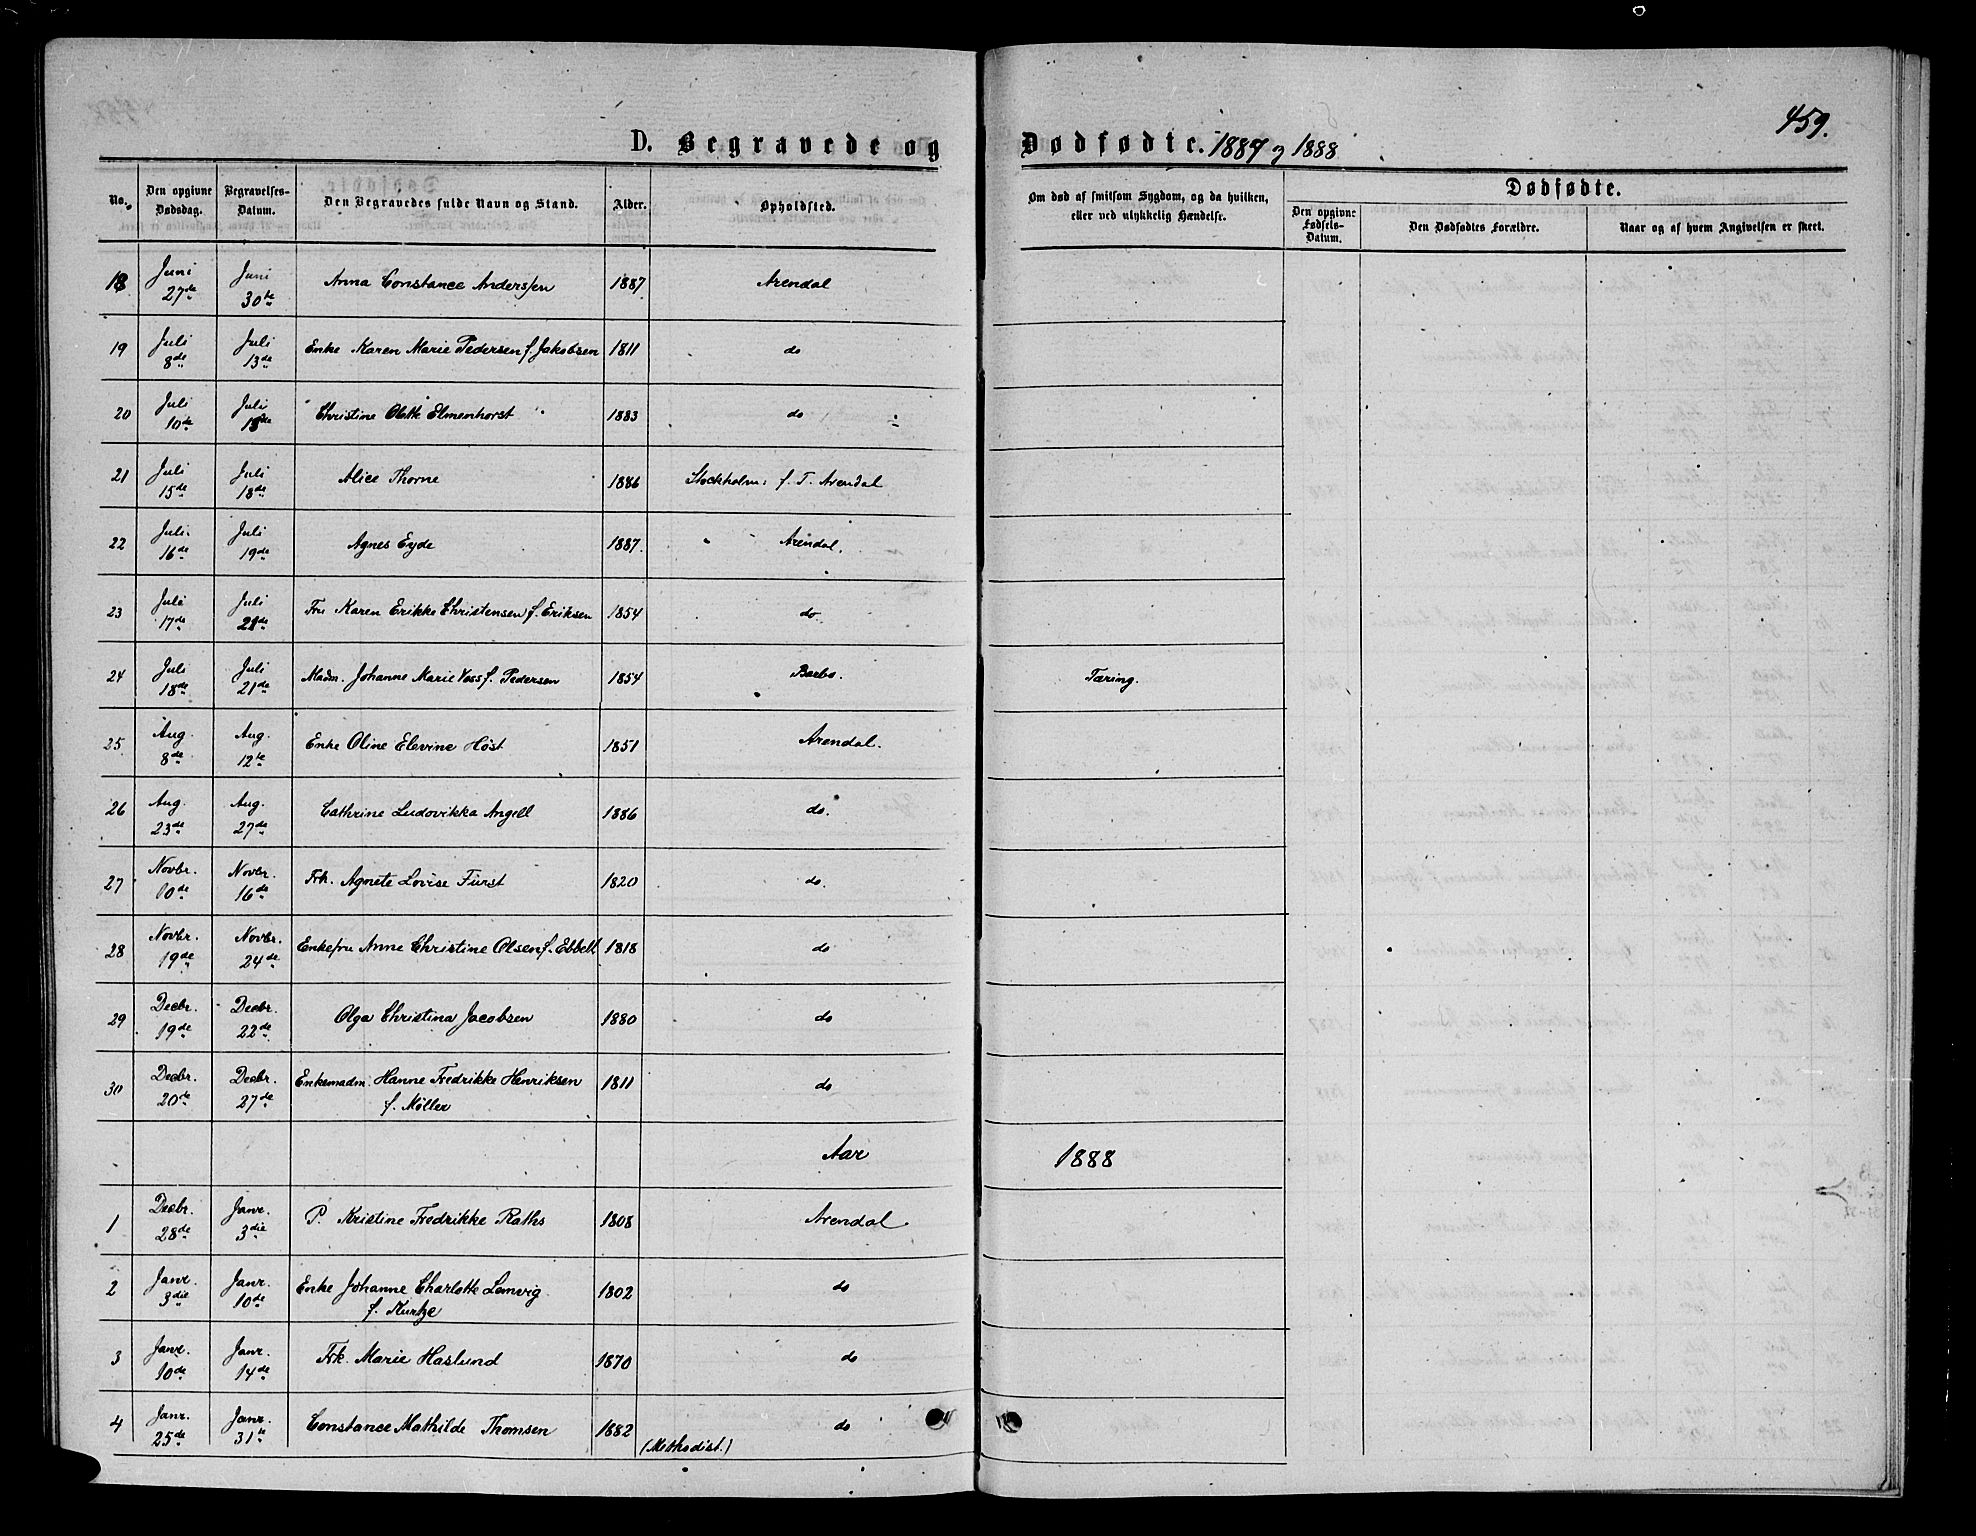 459.
D. Begravede og Dødfødte. 1887 og 1888
No. Den opgivne Dødsdag. Begravelses-Datum. Den Begravedes fulde Navn og Stand. Alder. Opholdsted. Om død af smitsom Sygdom, og da hvilken, eller ved ulykkelig Hændelse. Dødfødte. Den opgivne Fødsels-Datum. Den Dødfødtes Forældre. Naar og af hvem Angivelsen er skeet.
18 Juni 27de Juni 30te Anna Constance Anderssen 1887 Arendal
19 Juli 8de Juli 13de Enke Karen Marie Pedersen f. Jakobsen 1811 do
20 Juli 10de Juli 13de Christine Olette Elmenhorst 1883 do
21 Juli 15de Juli 18de Alice Thorne 1886 Stockholm: f. T. Arendal
22 Juli 16de Juli 19de Agnes Eyde 1887. Arendal.
23 Juli 17de Juli 21de Fru Karen Erikke Christensen f. Eriksen 1854 do
24 Juli 18de Juli 21de Madm. Johanne Marie Voss f. Pedersen 1854 Barbo. Tæring.
25 Aug. 8de Aug. 12te Enke Oline Elevine Høst 1851 Arendal.
26 Aug. 23de Aug. 27de Cathrine Ludovikka Angell 1886 do.
27 Novbr. 10de Novbr. 16de Frk. Agnete Lovise Fürst 1820 do.
28 Novbr. 19de Novbr. 24de Enkefru Anne Christine Olsen f. Ebbell 1818 do
29 Decbr. 19de Decbr. 22de Olga Christina Jacobsen 1880 do
30 Decbr. 20de Decbr. 27de Enkemadm. Hanne Fredrikke Henriksen 1811 do
f. Møller
Aar 1888
1 Decbr. 28de Janr. 3die P. Kristine Fredrikke Raths 1808 Arendal
2 Janr. 3die Janr. 10de Enke Johanne Charlotte Lemvig 1802 do
f. Kurtze
3 Janr. 10de Janr. 14de Frk. Marie Haslund 1870 do
4 Janr. 25de Janr. 31te Constance Mathilde Thomsen 1882 do
(Methodist.)